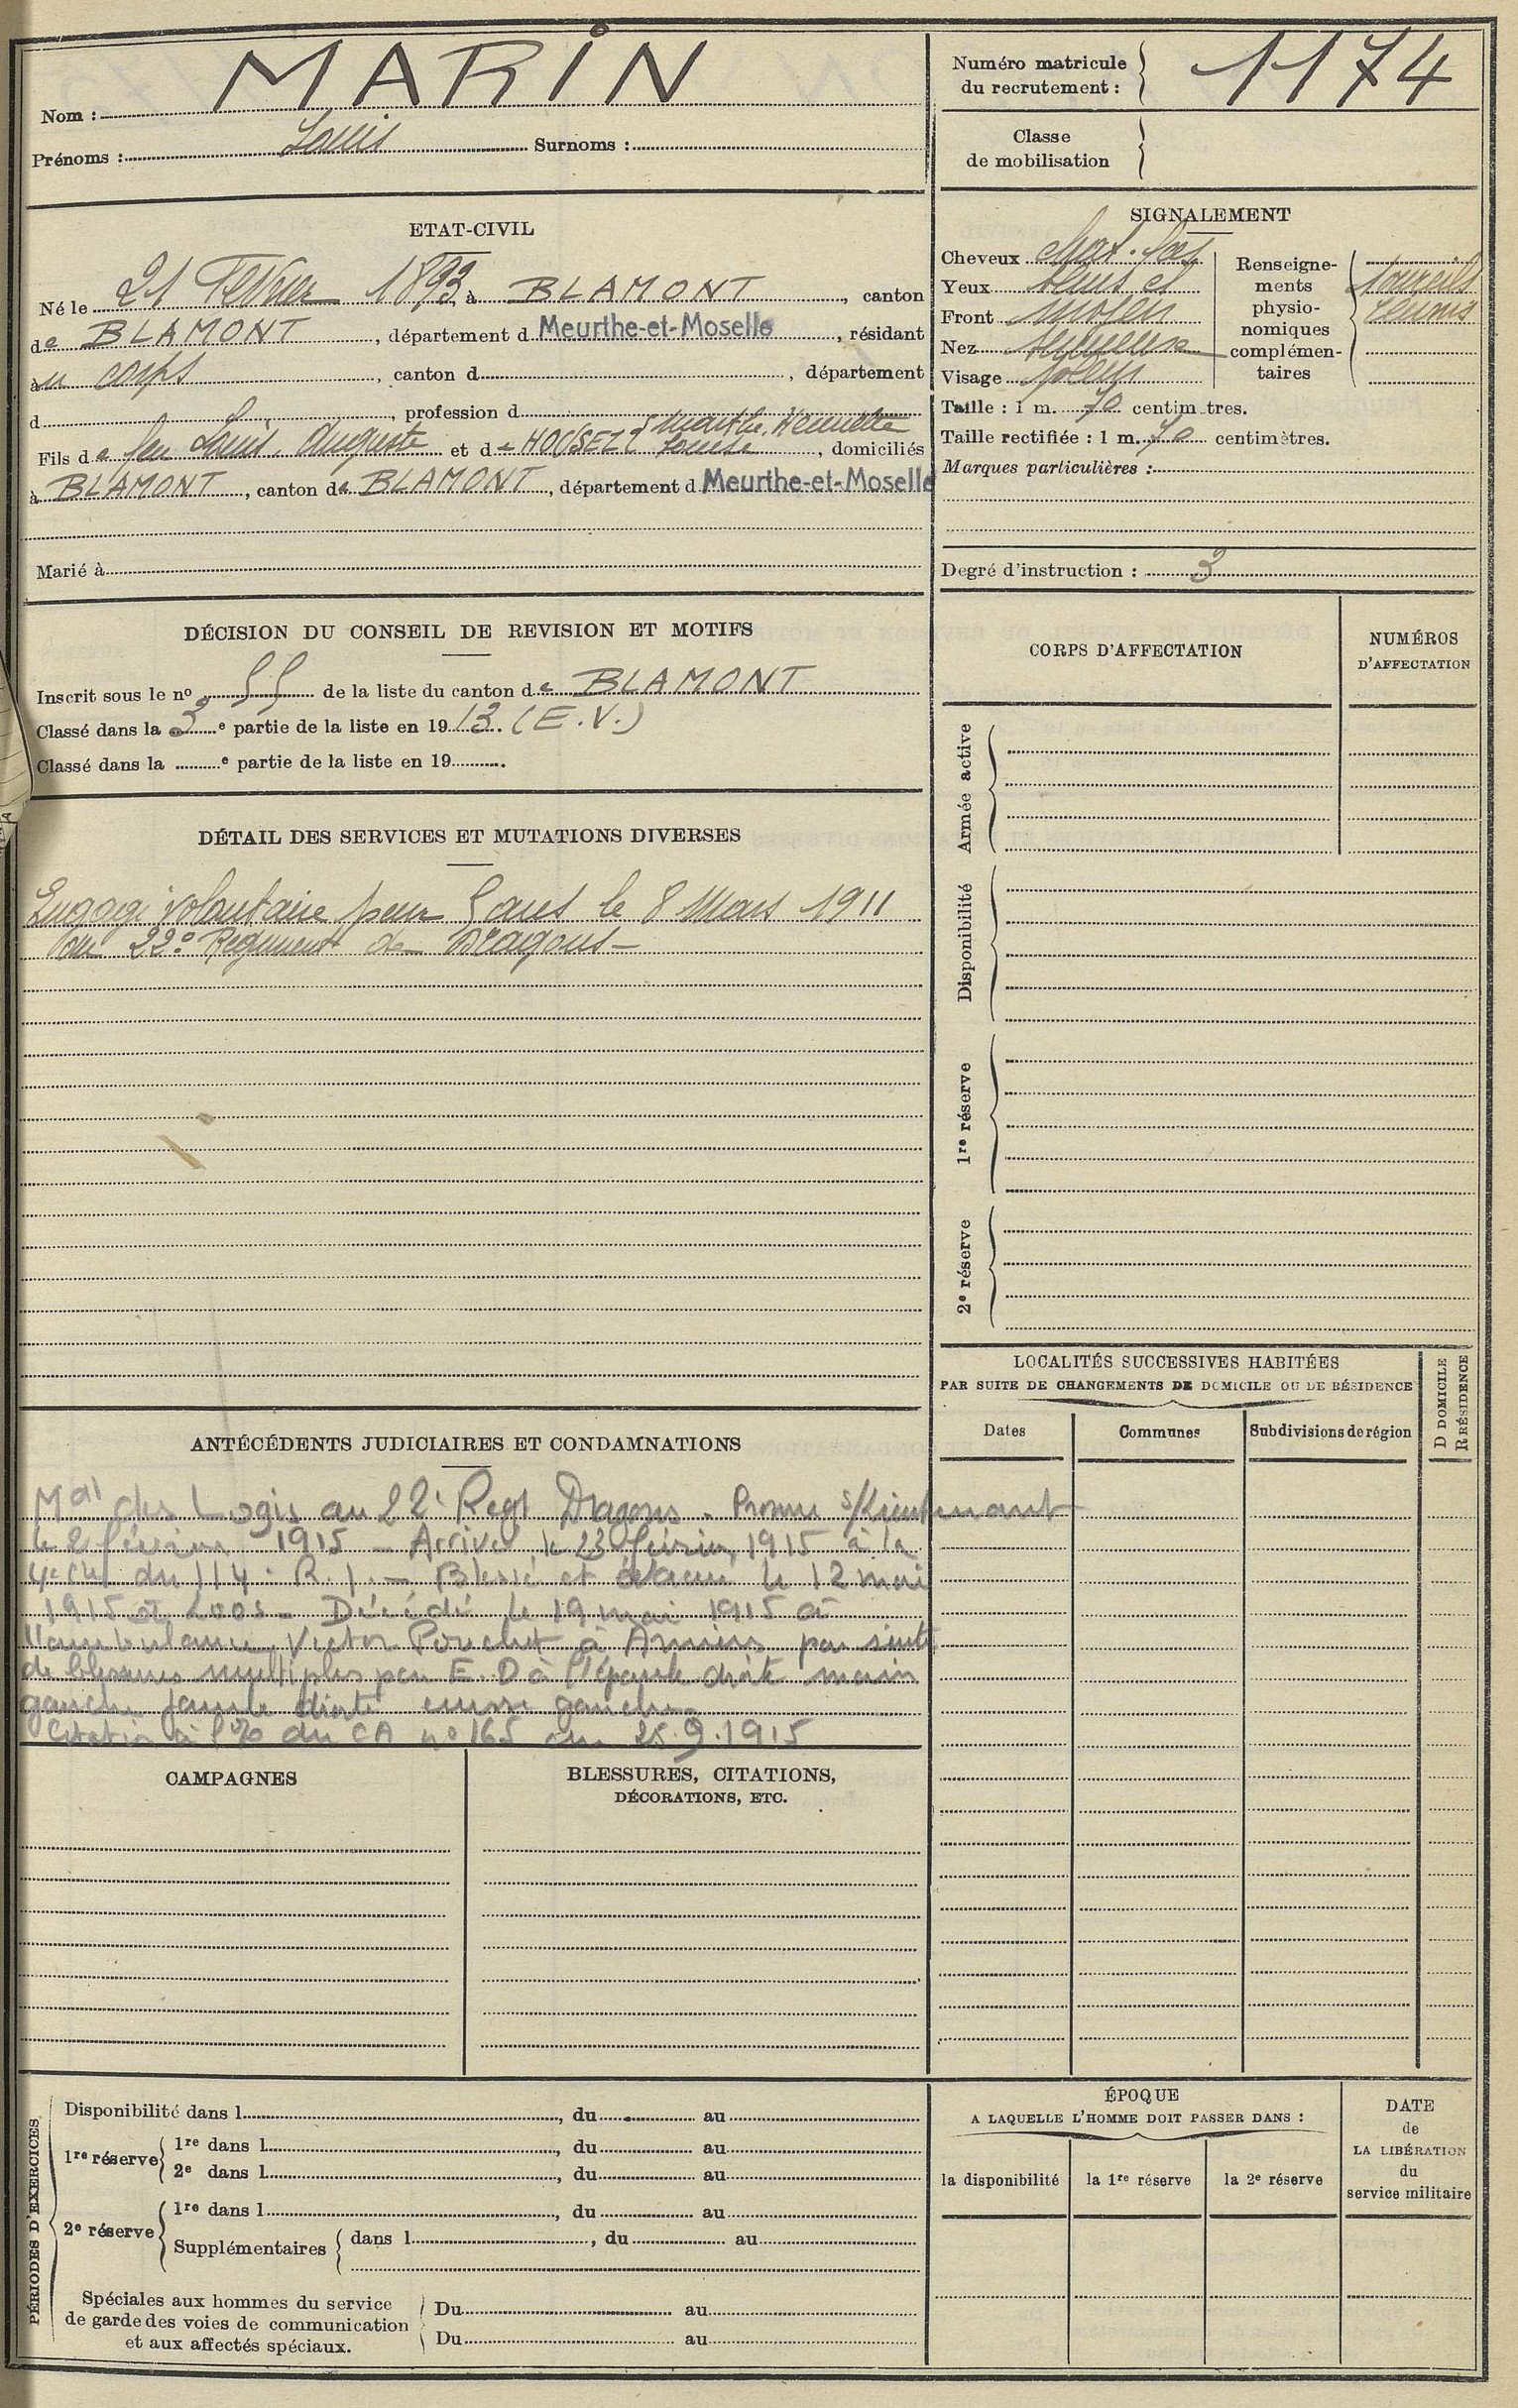 Nom : MARIN
Prénoms : Louis Surnoms :
Numéro matricule
du recrutement : 1174
Classe
de mobilisation
ETAT-CIVIL
Né le 21 Février 1893 à BLAMONT, canton
de BLAMONT, département d Meurthe-et-Moselle, résidant
au corps, canton d, département
d, profession d
Fils de feu Louis, Auguste et de HOUSEZ Marthe, Henriette Louise, domiciliés
à BLAMONT, canton de BLAMONT, département d Meurthe-et-Moselle
Marié à
SIGNALEMENT
Cheveux
Yeux
Front moyen
Nez
Visage
Renseigne-
ments
physio-
nomiques
complémen-
taires
sourcils
Taille : 1 m. 70 centim tres.
Taille rectifiée : 1 m. 70 centimètres.
Marques particulières :
Degré d'instruction : 3
DÉCISION DU CONSEIL DE REVISION ET MOTIFS
Inscrit sous le nº 55 de la liste du canton de BLAMONT
Classé dans la 3e partie de la liste en 1913. (E.V.)
Classé dans la e partie de la liste en 19 .
CORPS D'AFFECTATION
NUMÉROS
D'AFFECTATION
Armée active
Disponibilité
1re réserve
2e réserve
DÉTAIL DES SERVICES ET MUTATIONS DIVERSES
Engagé volontaire pour 5 ans le 8 Mars 1911
au 22e Régiment de Dragons –
LOCALITÉS SUCCESSIVES HABITÉES
PAR SUITE DE CHANGEMENTS DE DOMICILE OU DE RÉSIDENCE
D DOMICILE
R RÉSIDENCE
Dates
Communes
Subdivisions de région
ANTÉCÉDENTS JUDICIAIRES ET CONDAMNATIONS
Mal des Logis au 22e Regt Dragons - Promu s/Lieutenant
le 2 février 1915 – Arrivé le 23 février 1915 à la
4e Cie du 114e R.I. – Blessé et évacué le 12 mai
1915 à Loos – Décédé le 19 mai 1915 à
l'ambulance Victor Pouchet à Amiens par suite
de blessures multiples par E.O à l'épaule droite main
gauche jambe droite cuisse gauche
Citation à l'O/ du CA nº 165 du 25.9.1915
CAMPAGNES
BLESSURES, CITATIONS,
DÉCORATIONS, ETC.
PÉRIODES D'EXERCICES
Disponibilité dans l, du au
1re réserve
1re dans l, du au
2e dans l, du au
2e réserve
1re dans l, du au
Supplémentaires dans l, du au
Spéciales aux hommes du service
de garde des voies de communication
et aux affectés spéciaux.
Du au
Du au
ÉPOQUE
A LAQUELLE L'HOMME DOIT PASSER DANS :
la disponibilité
la 1re réserve
la 2e réserve
DATE
de
LA LIBÉRATION
du
service militaire